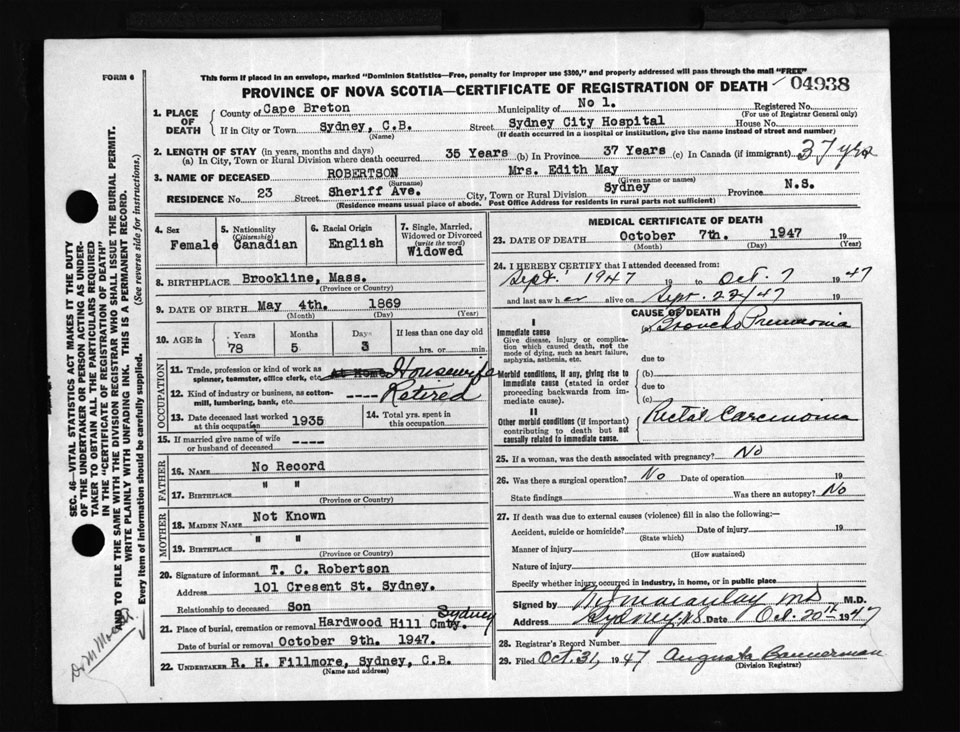 FORM 6
This form if placed in an envelope, marked "Dominion Statistics—Free, penalty for improper use $300," and properly addressed will pass through the mail "FREE"
PROVINCE OF NOVA SCOTIA—CERTIFICATE OF REGISTRATION OF DEATH
04938
SEC. 46—VITAL STATISTICS ACT MAKES IT THE DUTY
OF THE UNDERTAKER OR PERSON ACTING AS UNDER-
TAKER TO OBTAIN ALL THE PARTICULARS REQUIRED
IN THE "CERTIFICATE OF REGISTRATION OF DEATH"
AND TO FILE THE SAME WITH THE DIVISION REGISTRAR WHO SHALL ISSUE THE BURIAL PERMIT.
WRITE PLAINLY WITH UNFADING INK. THIS IS A PERMANENT RECORD.
Every item of Information should be carefully supplied. (See reverse side for instructions.)
1. PLACE OF DEATH
County of Cape Breton Municipality of No 1. Registered No.
(For use of Registrar General only)
If in City or Town Sydney, C.B. Street Sydney City Hospital House No.
(Name) (If death occurred in a hospital or institution, give the name instead of street and number)
2. LENGTH OF STAY (in years, months and days)
(a) In City, Town or Rural Division where death occurred 35 Years (b) In Province 37 Years (c) In Canada (if immigrant) 37 yrs
3. NAME OF DECEASED ROBERTSON Mrs. Edith May
(Surname) (Given name or names)
RESIDENCE No. 23 Street Sheriff Ave. City, Town or Rural Division Sydney Province N.S.
(Residence means usual place of abode. Post Office Address for residents in rural parts not sufficient)
4. Sex
Female
5. Nationality
(Citizenship)
Canadian
6. Racial Origin
English
7. Single, Married,
Widowed or Divorced
(write the word)
Widowed
8. BIRTHPLACE Brookline, Mass.
(Province or Country)
9. DATE OF BIRTH May 4th. 1869
(Month) (Day) (Year)
10. AGE in
Years Months Days If less than one day old
78 5 3 hrs. or min.
OCCUPATION
11. Trade, profession or kind of work as
spinner, teamster, office clerk, etc. At Home Housewife
12. Kind of industry or business, as cotton-
mill, lumbering, bank, etc. ---- Retired
13. Date deceased last worked
at this occupation 1935
14. Total yrs. spent in
this occupation
15. If married give name of wife
or husband of deceased ----
FATHER
16. NAME No Record
17. BIRTHPLACE " "
(Province or Country)
MOTHER
18. MAIDEN NAME Not Known
19. BIRTHPLACE " "
(Province or Country)
20. Signature of informant T. C. Robertson
Address 101 Cresent St. Sydney.
Relationship to deceased Son
21. Place of burial, cremation or removal Hardwood Hill Cmty. Sydney
Date of burial or removal October 9th. 1947.
22. UNDERTAKER R. H. Fillmore, Sydney, C.B.
(Name and address)
MEDICAL CERTIFICATE OF DEATH
23. DATE OF DEATH October 7th. 1947 19
(Month) (Day) (Year)
24. I HEREBY CERTIFY that I attended deceased from:
Sept. 1947 19 to Oct. 7 1947
and last saw her alive on Sept. 22/47 19
CAUSE OF DEATH
I
Immediate cause
Give disease, injury or compli-
cation which caused death, not the
mode of dying, such as heart failure,
asphyxia, asthenia, etc.
(a) Broncho Pneumonia
due to
Morbid conditions, if any, giving rise to
immediate cause (stated in order
proceeding backwards from im-
mediate cause).
(b)
due to
(c)
II
Other morbid conditions (if important)
contributing to death but not
causally related to immediate cause.
Rectal Carcinoma
25. If a woman, was the death associated with pregnancy? No
26. Was there a surgical operation? No Date of operation 19
State findings Was there an autopsy? No
27. If death was due to external causes (violence) fill in also the following:—
Accident, suicide or homicide? Date of injury 19
(State which)
Manner of injury
(How sustained)
Nature of injury
Specify whether injury occurred in industry, in home, or in public place
Signed by Macaulay MD M.D.
Address Sydney, N.S. Date Oct. 20th 1947
28. Registrar's Record Number
29. Filed Oct. 31, 1947 Augusta Bannerman
(Division Registrar)